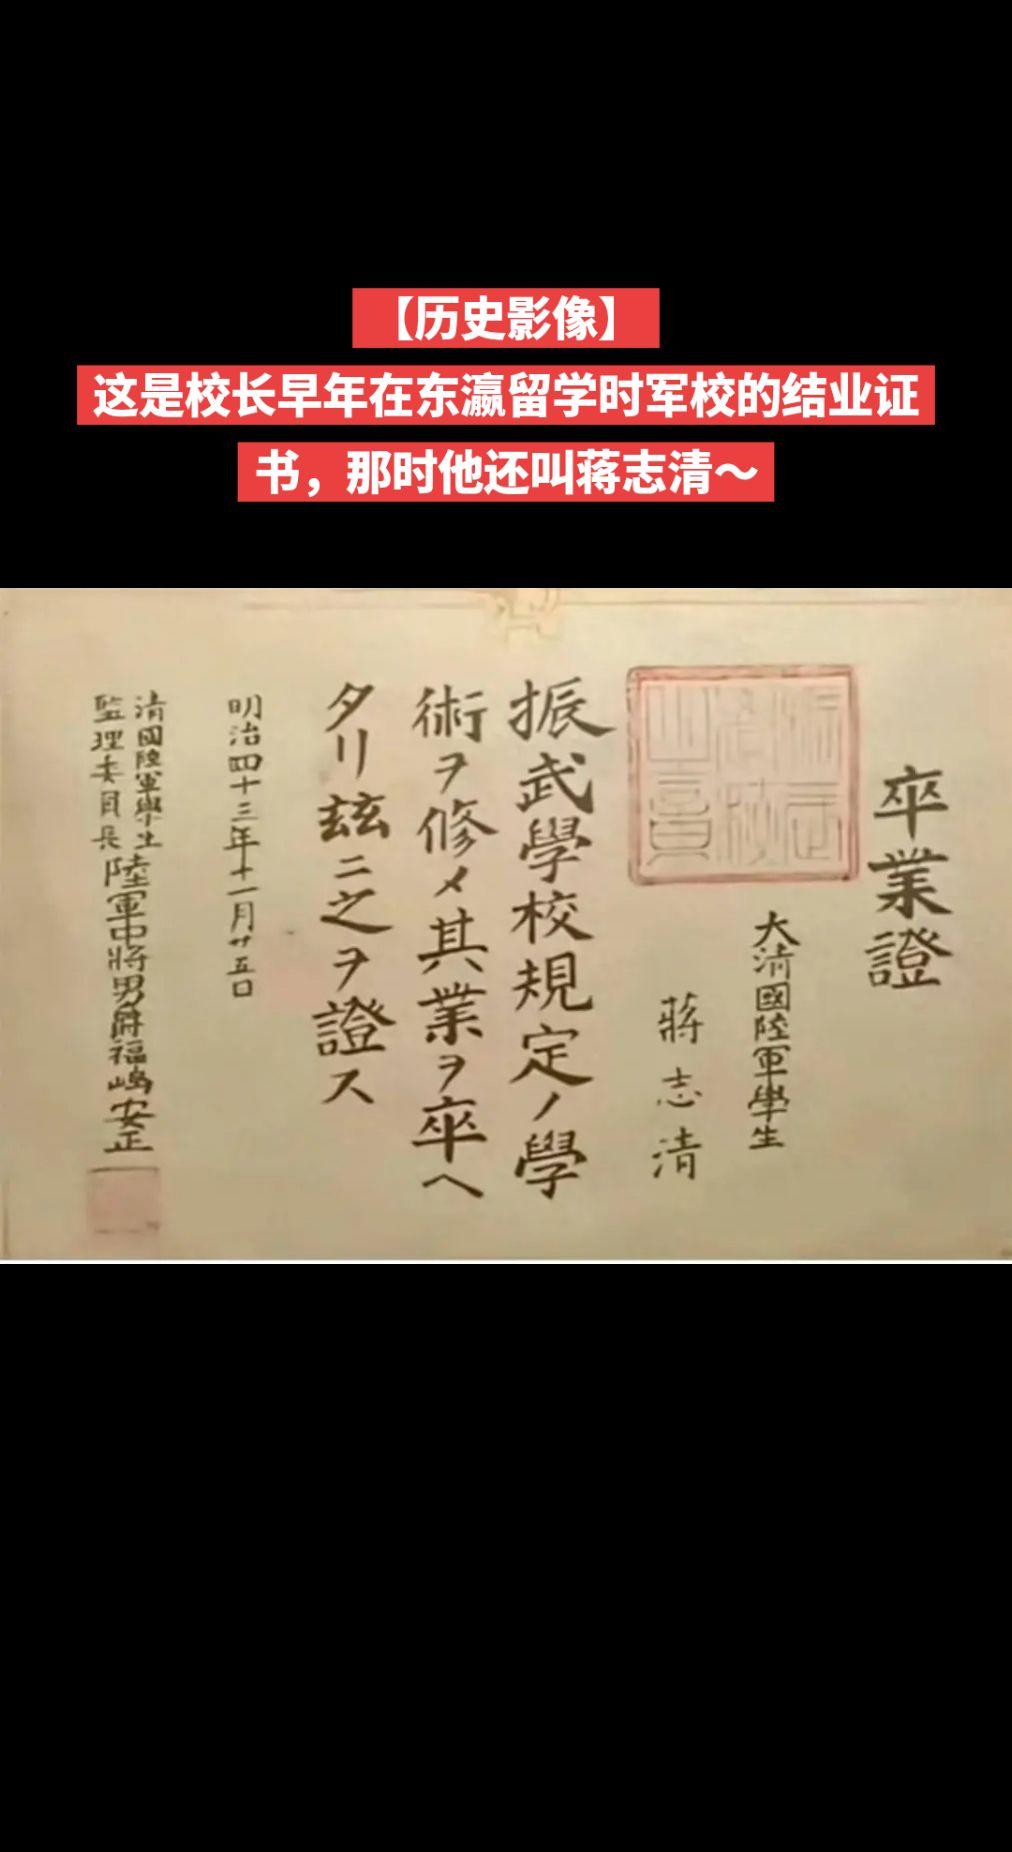 【历史影像】
这是校长早年在东瀛留学时军校的结业证
书，那时他还叫蒋志清～
卒業證
大清國陸軍學生
蔣志清
振武學校規定ノ學
術ヲ修メ其業ヲ卒ヘ
タリ玆ニ之ヲ證ス
明治四十三年十一月廿五日
清國陸軍學生
監理委員長
陸軍中將男爵福嶋安正